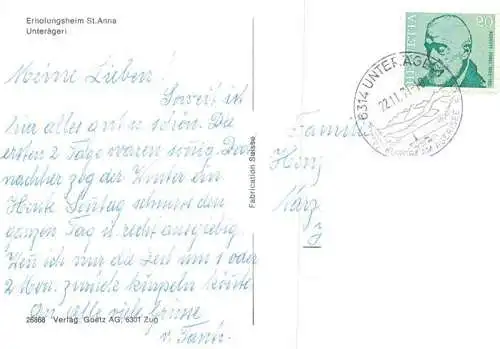 Erholungsheim St.Anna
Unterägeri
Meine Lieben!
Soweit ist
hier alles gut u schön. Die
ersten 2 Tage waren sonig. Dann
nachher zog der Winter ein
Heute Sontag schneit es den
ganzen Tag u recht ausgiebig.
Wen ich nur die Zeit um 1 oder
2 Mon. zurück kurpeln könte
An alle viele Grüsse
v. Tante
26868 Verlag: Goetz AG, 6301 Zug
Fabrication Suisse
HELVETIA 20
6314 UNTERÄGERI
22.11.71
Famil